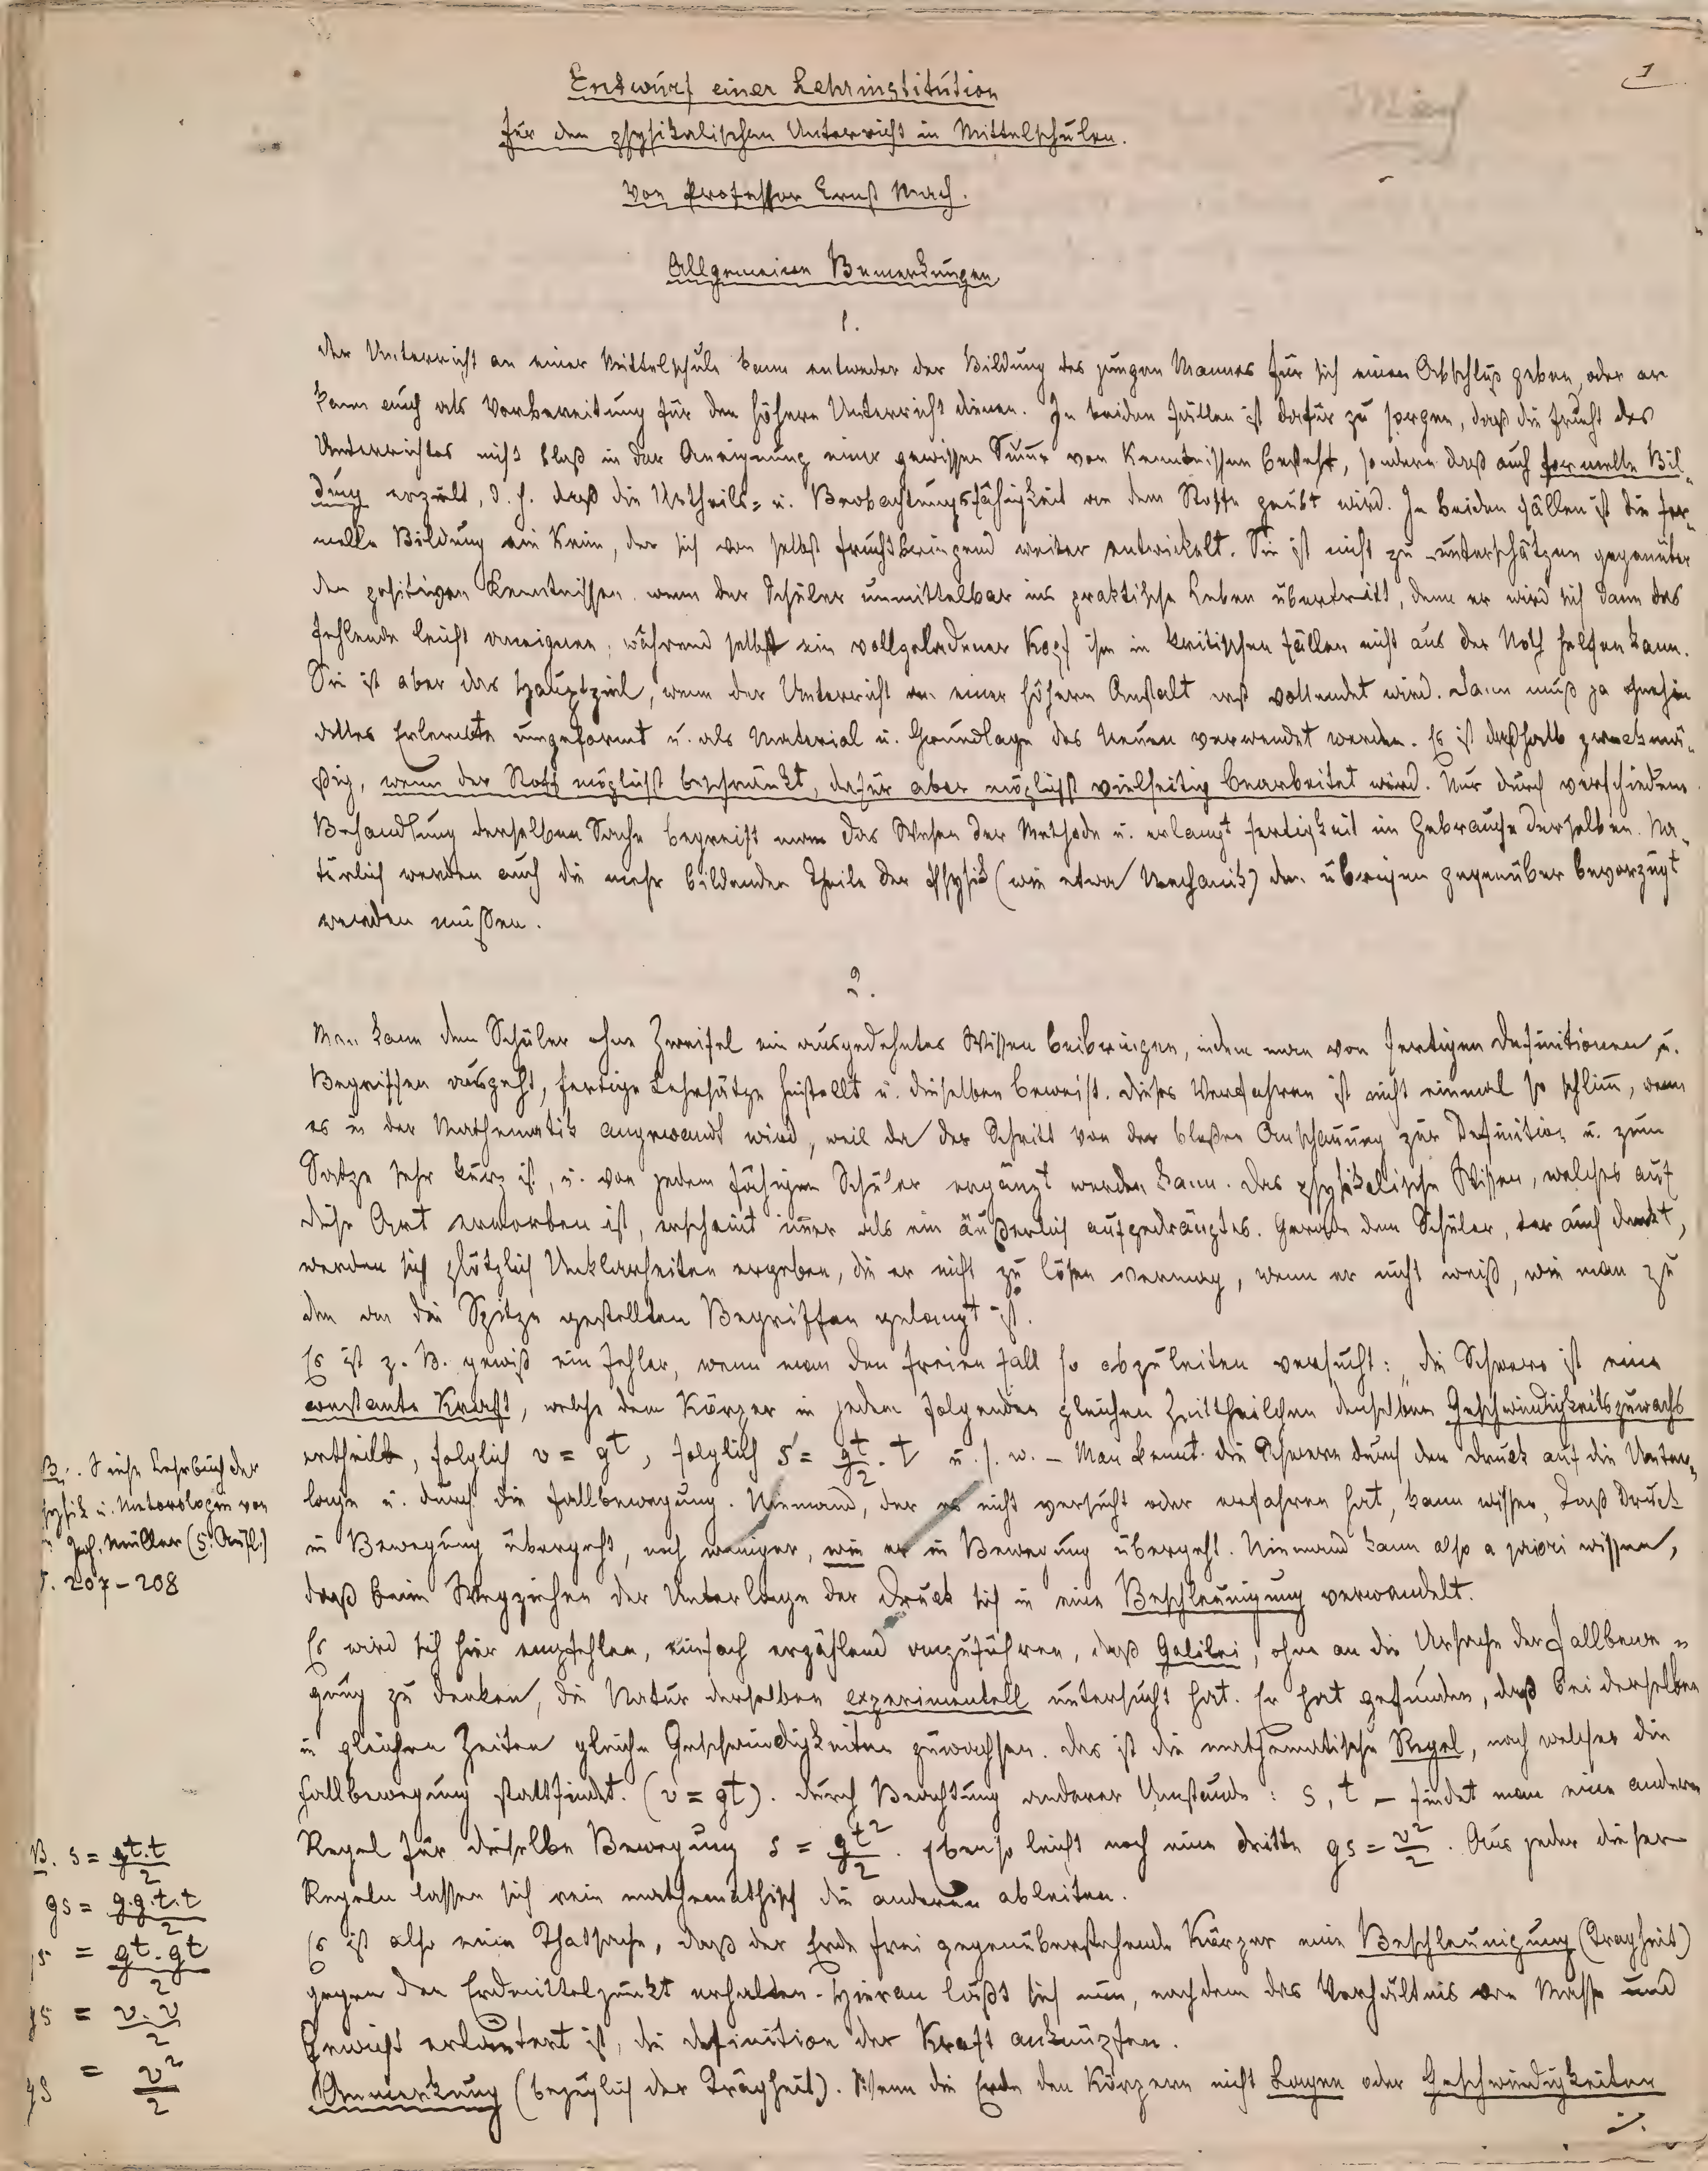 1
Mach
Entwurf einer Lehrinstitution
für den physikalischen Unterricht in Mittelschulen.
Von Professor Ernst Mach.
Allgemeine Bemerkungen
1.
Der Unterricht an einer Mittelschule kann entweder der Bildung des jungen Mannes für sich einen Abschluß geben, oder er
kann auch als Vorbereitung für den höhern Unterricht dienen. In beiden Fällen ist dafür zu sorgen, daß die Frucht des
Unterrichtes nicht bloß in der Aneignung einer gewissen Summe von Kenntnissen besteht, sondern daß auch formelle Bil-
dung erzielt, d. h. daß die Urtheils- u. Beobachtungsfähigkeit an dem Stoffe geübt wird. In beiden Fällen ist die for-
melle Bildung ein Keim, der sich von selbst fruchtbringend weiter entwickelt. Sie ist nicht zu unterschätzen gegenüber
den positiven Kenntnissen wenn der Schüler unmittelbar ins praktische Leben übertritt, denn er wird sich dann das
Fehlende leicht aneignen, während selbst ein vollgeladener Kopf ihm in kritischen Fällen nicht aus der Noth helfen kann.
Sie ist aber das Hauptziel, wenn der Unterricht an einer höhern Anstalt erst vollendet wird. Dann muß ja ohnehin
alles Erlernte umgeformt u. als Material u. Grundlage des Neuen verwendet werden. Es ist deßhalb zweckmä-
ßig, wenn der Stoff möglichst beschränkt, dafür aber möglichst vielseitig bearbeitet wird. Nur durch verschiedene
Behandlung derselben Sache begreift man das Wesen der Methode u. erlangt Fertigkeit im Gebrauche derselben. Na-
türlich werden auch die mehr bildenden Theile der Physik (wie etwa Mechanik) den übrigen gegenüber bevorzugt
werden müßen.
2.
Man kann dem Schüler ohne Zweifel ein ausgedehntes Wissen beibringen, indem man von fertigen Definitionen u.
Begriffen ausgeht, fertige Lehrsätze hinstellt u. dieselben beweist. Dieses Verfahren ist nicht einmal so schlimm, wenn
es in der Mathematik angewandt wird, weil da der Schritt von der bloßen Anschauung zur Definition u. zum
Satze sehr kurz ist, u. von jedem fähigen Schüler ergänzt werden kann. Das physikalische Wissen, welches auf
diese Art erworben ist, erscheint immer als ein äußerlich aufgedrängtes. Gerade dem Schüler, der auch denkt,
werden sich plötzlich Unklarheiten ergeben, die er nicht zu lösen vermag, wenn er nicht weiß, wie man zu
den an die Spitze gestellten Begriffen gelangt ist.
Es ist z. B. gewiß ein Fehler, wenn man den freien Fall so abzuleiten versucht: „die Schwere ist eine
constante Kraft, welche dem Körper in jedem folgenden gleichen Zeittheilchen denselben Geschwindigkeitszuwachs
ertheilt, folglich v = gt, folglich s = gt/2 . t u. s. w. – Man kennt die Schwere durch den Druck auf die Unter-
lage u. durch die Fallbewegung. Niemand, der es nicht versucht oder erfahren hat, kann wissen, daß Druck
in Bewegung übergeht, noch weniger, wie er in Bewegung übergeht. Niemand kann also a priori wissen,
daß beim Wegziehen der Unterlage der Druck sich in eine Beschleunigung verwandelt.
Es wird sich hier empfehlen, einfach erzählend anzuführen, daß Galilei, ohne an die Ursache der Fallbewe-
gung zu denken, die Natur derselben experimentell untersucht hat. Er hat gefunden, daß bei derselben
in gleichen Zeiten gleiche Geschwindigkeiten zuwachsen. Das ist die mathematische Regel, nach welcher die
Fallbewegung stattfindet. (v = gt). Durch Beachtung anderer Umstände: s, t – findet man eine andere
Regel für dieselbe Bewegung s = gt²/2. Ebenso leicht noch eine dritte gs = v²/2. Aus jeder dieser
Regeln lassen sich rein mathemathisch die anderen ableiten.
Es ist also eine Thatsache, daß der Erde frei gegenüberstehende Körper eine Beschleunigung (Tragheit)
gegen den Erdmittelpunkt erhalten. Hieran läßt sich nun, nachdem das Verhältnis von Masse und
Gewicht erläutert ist, die Definition der Kraft anknüpfen.
Anmerkung (bezüglich der Trägheit). Wenn die Erde den Körpern nicht Lagen oder Geschwindigkeiten
B. Siehe Lehrbuch der
Physik u. Meteorologie von
Joh. Müller (5. Aufl.)
S. 207–208
B. s = gt.t/2
gs = g.g.t.t/2
gs = gt.gt/2
gs = v.v/2
gs = v²/2